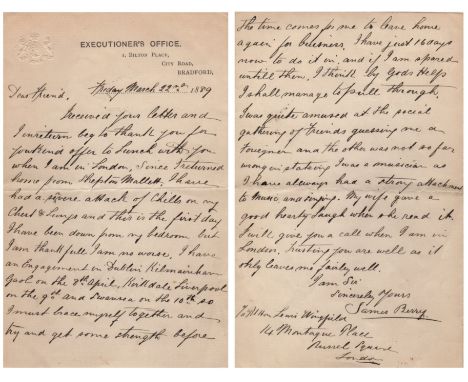 EXECUTIONER'S OFFICE.
1, BILTON PLACE,
CITY ROAD,
BRADFORD,
Friday March 22nd 1889
Dear Friend.
I received your letter and
I in return beg to thank you for
your kind offer to Lunch with you
when I am in London, Since I returned
home from Shepton Mallett, I have
had a severe attack of Chills on my
Chest & Lungs and this is the first day
I have been down from my bedroom but
I am thankfull I am no worse, I have
an Engagement in Dublin Kilmainham
Gaol on the 8th April, Kirkdale Liverpool
on the 9th and Swansea on the 10th so
I must brace myself together and
try and get some strength before
the time comes for me to leave home
again for buisness. I have just 16 days
now to do it in, and if I am spared
untill then, I think by Gods help
I shall manage to pull through.
I was quite amused at the social
gathering of friends guessing me a
foreigner and the other was not so far
wrong in stating I was a musician as
I have allways had a strong attachment
to music, and singing. My wife gave a
good hearty laugh when she read it.
I will give you a call when I am in
London, trusting you are well as it
only leaves me fairly well.
I am Sir
Sincerely Yours
James Berry
To Mr Hon Lewis Wingfield
14 Montague Place
Russel Square
London